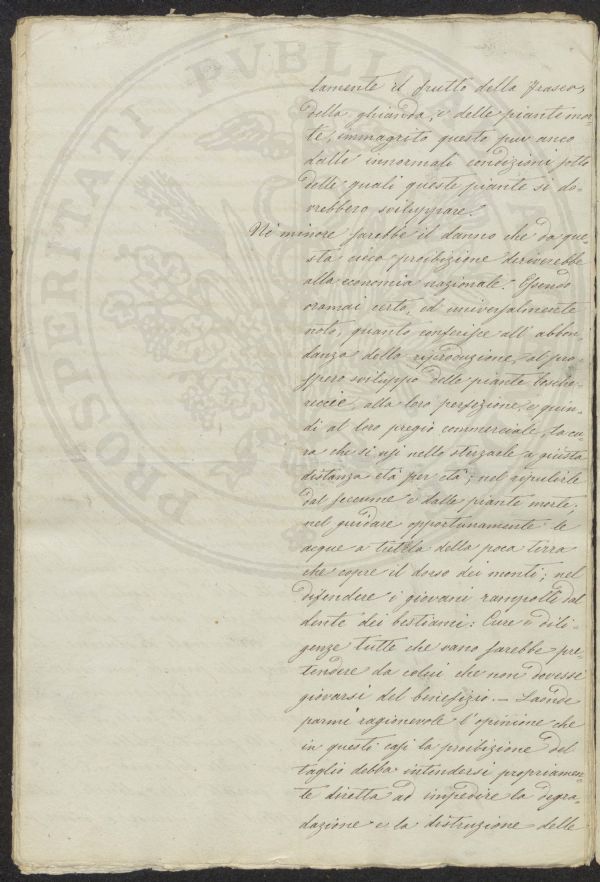 PROSPERITATI PVBLICA
lamente il frutto della frasca,
della ghianda, e delle piante mor-
te, immagrito questo pur anco
dalle innormali condizioni sotto
delle quali queste piante si do-
vrebbero sviluppare.
Nè minore sarebbe il danno che da que-
sta cieca proibizione deriverebbe
alla economia nazionale. Essendo
oramai certo, ed universalmente
noto, quanto conferisce all' abbon-
danza della riproduzione, al pro-
spero sviluppo delle piante bosche-
reccie, alla loro perfezione, e quin-
di al loro pregio commerciale, la cu-
ra che si usi nello sterzarle a giusta
distanza età per età; nel ripulirle
dal seccume e dalle piante morte;
nel guidare opportunamente le
acque a tutela della poca terra
che copre il dorso dei monti; nel
difendere i giovani rampolli dal
dente dei bestiami: Cure e dili-
genze tutte che vano sarebbe pre-
tendere da colui che non dovesse
giovarsi del benefizio. — Laonde
parmi ragionevole l'opinione che
in questi casi la proibizione del
taglio debba intendersi propriamen-
te diretta ad impedire la degra-
dazione e la distruzione delle